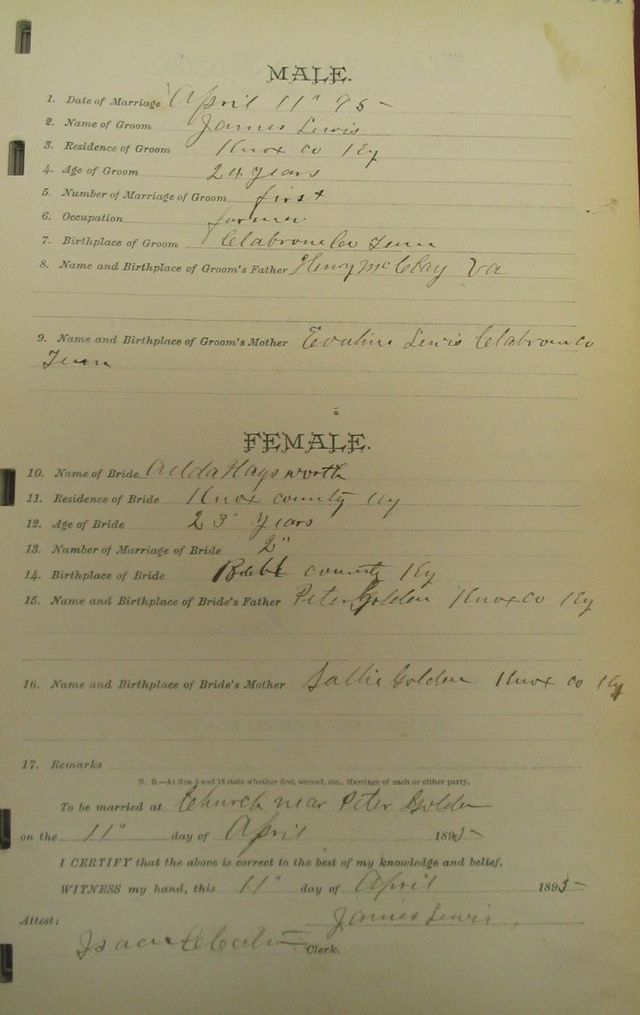 MALE.
1. Date of Marriage April 11" 95
2. Name of Groom James Lewis
3. Residence of Groom Knox co Ky
4. Age of Groom 24 years
5. Number of Marriage of Groom first
6. Occupation farmer
7. Birthplace of Groom Claborne Co Tenn
8. Name and Birthplace of Groom's Father Henry McClay Va
9. Name and Birthplace of Groom's Mother Evaline Lewis Claborn co
Tenn
FEMALE.
10. Name of Bride Adda Haysworth
11. Residence of Bride Knox county Ky
12. Age of Bride 23" years
13. Number of Marriage of Bride 2"
14. Birthplace of Bride Bell county Ky
15. Name and Birthplace of Bride's Father Peter Golden Knox co Ky
16. Name and Birthplace of Bride's Mother Sallie Golden Knox co Ky
17. Remarks
N. B.—At Nos. 5 and 13 state whether first, second, etc., Marriage of each or either party.
To be married at Church near Peter Golden
on the 11" day of April 1895
I CERTIFY that the above is correct to the best of my knowledge and belief.
WITNESS my hand, this 11" day of April 1895
James Lewis
Attest:
Isaac Clerk.